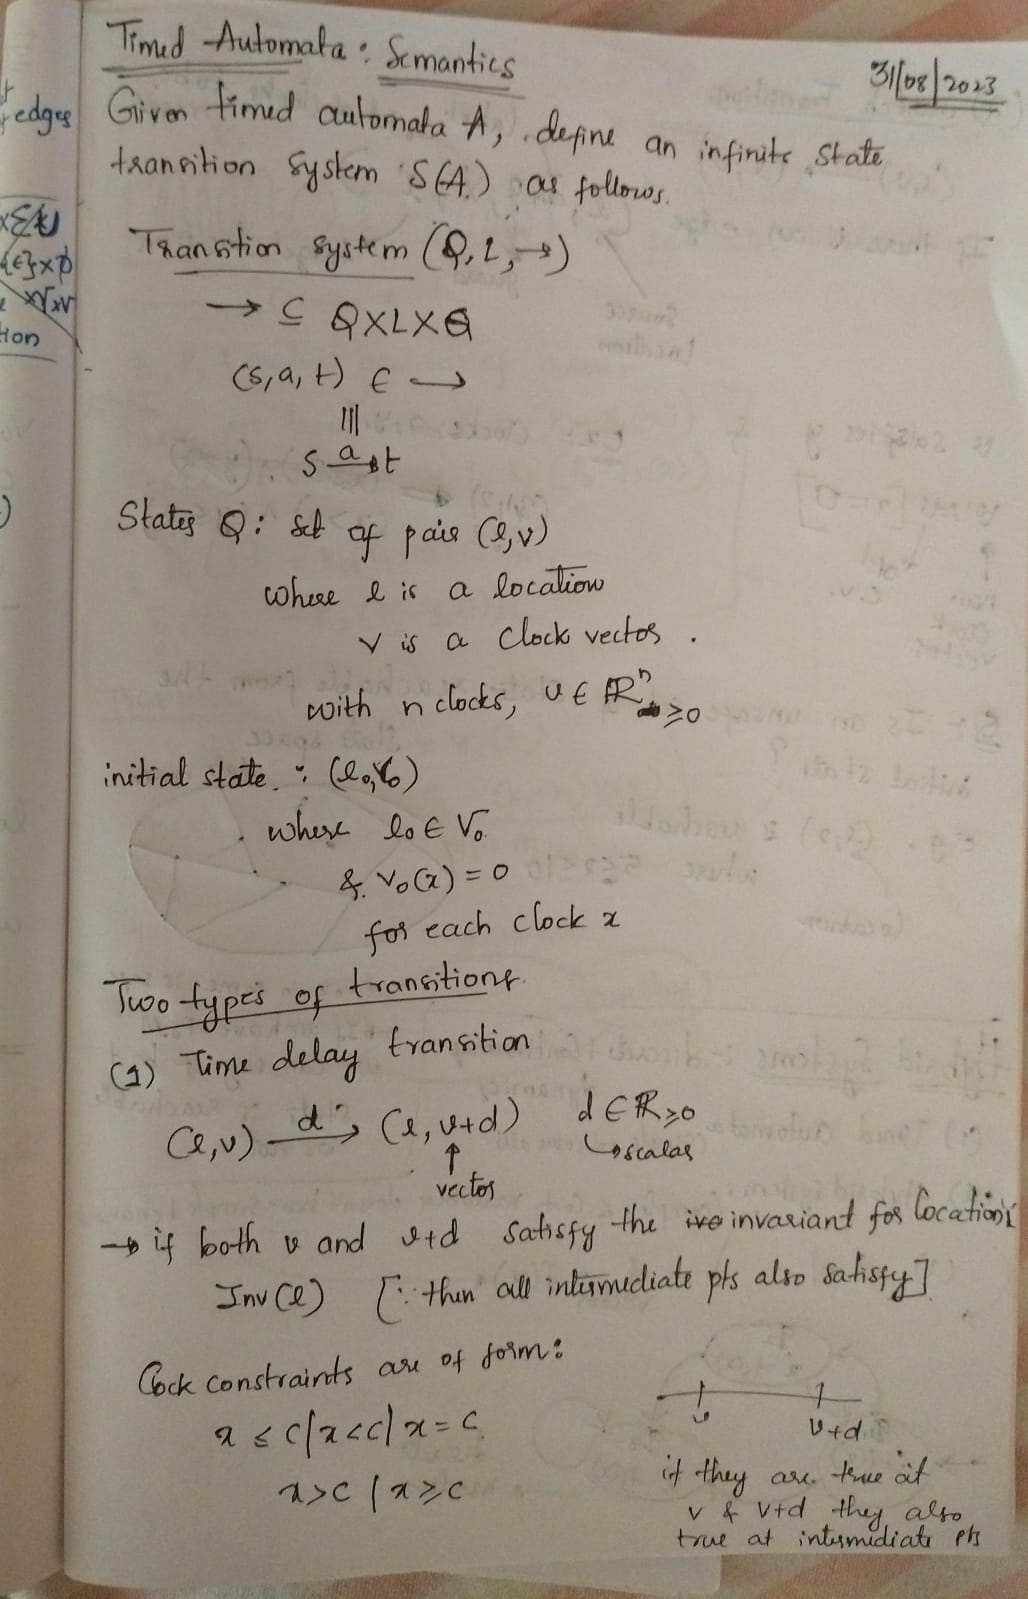 Timed Automata : Semantics
31/08/2023
Given timed automata A, define an infinite state
transition system S(A) as follows.
Transition system (Q, L, →)
→ ⊆ Q×L×Q
(s, a, t) ∈ →
|||
s -a→ t
States Q : set of pair (l, v)
where l is a location
v is a clock vector .
with n clocks, v ∈ ℝⁿ≥0
initial state : (l₀, v₀)
where l₀ ∈ V₀
& v₀(x) = 0
for each clock x
Two types of transitions
(1) Time delay transition
(l, v) -d→ (l, v+d) d ∈ ℝ≥0
↑ ↳ scalar
vector
→ if both v and v+d satisfy the invariant for location
Inv(l) [∵ then all intermediate pts also satisfy]
Clock constraints are of form :
x ≤ c | x < c | x = c
x > c | x ≥ c
v v+d
if they are true at
v & v+d they also
true at intermidiate pts
edges
tion